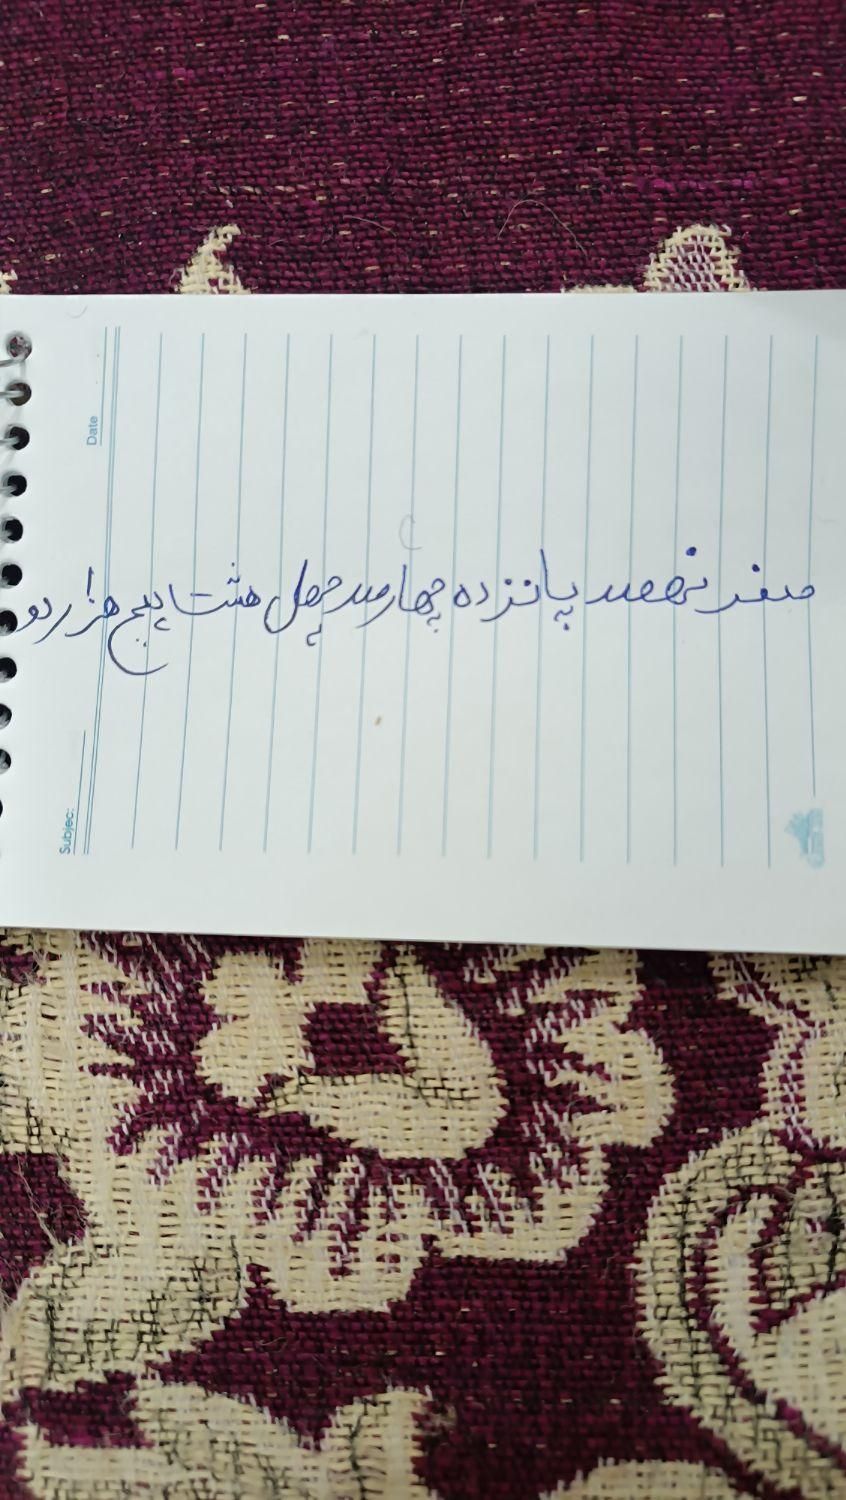 صفر نهصد پانزده چهارصد چهل هشتا پنج هزار دو
Date
Subjec: